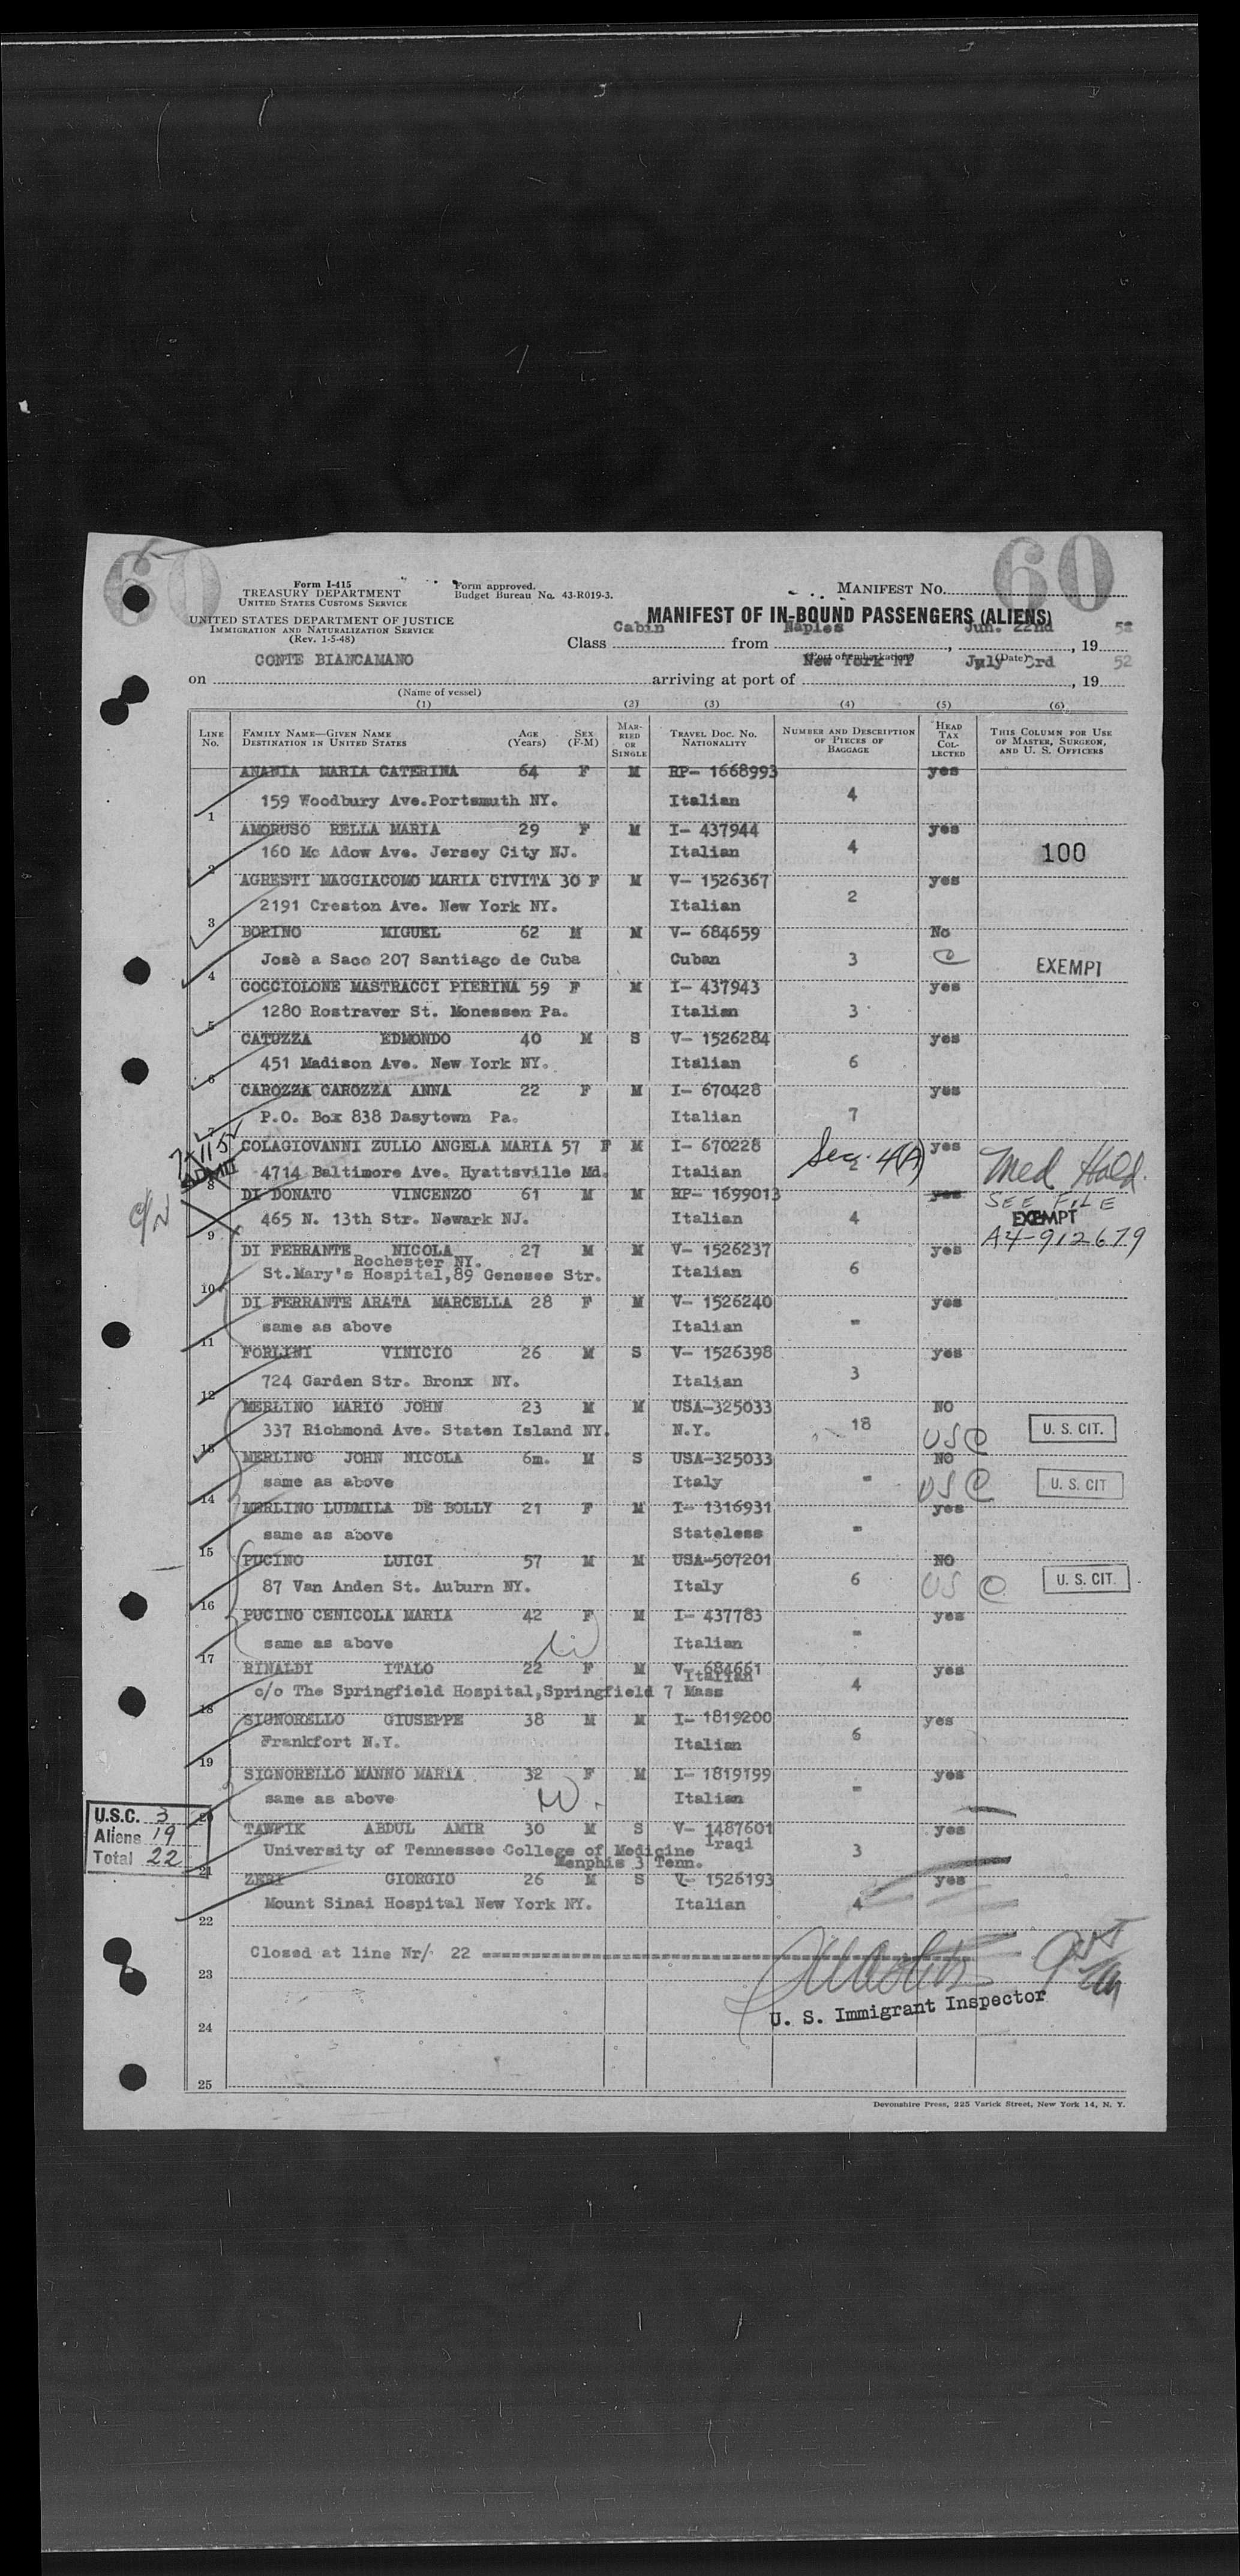 60 60
Form I-415
TREASURY DEPARTMENT
UNITED STATES CUSTOMS SERVICE
Form approved.
Budget Bureau No. 43-R019-3.
MANIFEST NO.
UNITED STATES DEPARTMENT OF JUSTICE
IMMIGRATION AND NATURALIZATION SERVICE
(Rev. 1-5-48)
MANIFEST OF IN-BOUND PASSENGERS (ALIENS)
Class Cabin from Naples, Jun. 22nd, 19 52
(Port of embarkation) (Date)
on CONTE BIANCAMANO arriving at port of New York NY July 3rd, 19 52
(Name of vessel)
(1) (2) (3) (4) (5) (6)
LINE No. FAMILY NAME—GIVEN NAME DESTINATION IN UNITED STATES AGE (Years) SEX (F-M) MARRIED OR SINGLE TRAVEL DOC. NO. NATIONALITY NUMBER AND DESCRIPTION OF PIECES OF BAGGAGE HEAD TAX COLLECTED THIS COLUMN FOR USE OF MASTER, SURGEON, AND U. S. OFFICERS
ANANIA MARIA CATERINA 64 F M RP- 1668993 yes
1 159 Woodbury Ave.Portsmuth NY. Italian 4
AMORUSO RELLA MARIA 29 F M I- 437944 yes
2 160 Mc Adow Ave. Jersey City NJ. Italian 4 100
AGRESTI MAGGIACOMO MARIA CIVITA 30 F M V- 1526367 yes
3 2191 Creston Ave. New York NY. Italian 2
BORINO MIGUEL 62 M M V- 684659 No
4 Josè a Saco 207 Santiago de Cuba Cuban 3 EXEMPT
COCCIOLONE MASTRACCI PIERINA 59 F M I- 437943 yes
5 1280 Rostraver St. Monessen Pa. Italian 3
CATUZZA EDMONDO 40 M S V- 1526284 yes
6 451 Madison Ave. New York NY. Italian 6
CAROZZA CAROZZA ANNA 22 F M I- 670428 yes
7 P.O. Box 838 Dasytown Pa. Italian 7
COLAGIOVANNI ZULLO ANGELA MARIA 57 F M I- 670228 yes
8 4714 Baltimore Ave. Hyattsville Md. Italian Sec. 4(A) Med Hold.
DI DONATO VINCENZO 61 M M RP- 1699013 yes SEE FILE
9 465 N. 13th Str. Newark NJ. Italian 4 EXEMPT
A4-912679
DI FERRANTE NICOLA 27 M M V- 1526237 yes
Rochester NY.
10 St.Mary's Hospital,89 Genesee Str. Italian 6
DI FERRANTE ARATA MARCELLA 28 F M V- 1526240 yes
11 same as above Italian "
FORLINI VINICIO 26 M S V- 1526398 yes
12 724 Garden Str. Bronx NY. Italian 3
MERLINO MARIO JOHN 23 M M USA-325033 NO
13 337 Richmond Ave. Staten Island NY. N.Y. 18 USC U. S. CIT.
MERLINO JOHN NICOLA 6m. M S USA-325033 NO
14 same as above Italy " USC U. S. CIT
MERLINO LUDMILA DE BOLLY 21 F M I- 1316931 yes
15 same as above Stateless "
PUCINO LUIGI 57 M M USA-507201 NO
16 87 Van Anden St. Auburn NY. Italy 6 USC U. S. CIT.
PUCINO CENICOLA MARIA 42 F M I- 437783 yes
17 same as above Italian "
RINALDI ITALO 22 F M V- 684661 yes
Italian
18 c/o The Springfield Hospital,Springfield 7 Mass 4
SIGNORELLO GIUSEPPE 38 M M I- 1819200 yes
19 Frankfort N.Y. Italian 6
SIGNORELLO MANNO MARIA 32 F M I- 1819199 yes
20 same as above Italian "
U.S.C. 3
Aliens 19
Total 22
TAWFIK ABDUL AMIR 30 M S V- 1487601 yes
Iraqi
21 University of Tennessee College of Medicine 3
Menphis 3 Tenn.
ZERI GIORGIO 26 M S V- 1526193 yes
22 Mount Sinai Hospital New York NY. Italian 4
Closed at line Nr/ 22
23
U. S. Immigrant Inspector
24
25
Devonshire Press, 225 Varick Street, New York 14, N. Y.